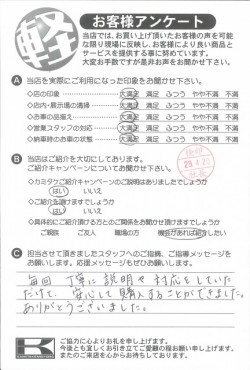 軽
お客様アンケート
当店では、お買い上げ頂いたお客様の声を可能
な限り現場に反映し、お客様により良い商品と
サービスを提供する事に努めています。
大変お手数ですが是非お声をお聞かせ下さい。
A 当店を実際にご利用になった印象をお聞かせ下さい。
◇店の印象 大満足 満足 ふつう やや不満 不満
◇店内・展示場の清掃 大満足 満足 ふつう やや不満 不満
◇お車の品揃え 大満足 満足 ふつう やや不満 不満
◇営業スタッフの対応 大満足 満足 ふつう やや不満 不満
◇納車時のお車の状態 大満足 満足 ふつう やや不満 不満
B 当店はご紹介を大切にしております。
ご紹介キャンペーンについてお聞かせ下さい。
◇カミタケご紹介キャンペーンのご説明はありましたでしょうか
はい いいえ
◇ご紹介を頂けますでしょうか
はい いいえ
◇具体的にご紹介頂ける方とのご関係をお聞かせ頂けますか
ご親族 ご友人 職場の方 機会があれば紹介したい
C 担当させて頂きましたスタッフへのご指摘、ご指導メッセージを
お願いします。応援メッセージもぜひお願いします。
毎回 丁寧に説明や対応をしていた
だけて、安心して購入することができました。
ありがとうございました。
K
ご協力に心よりお礼を申し上げます。
今後とも宜しくお引き立てご愛顧の程お願い申し上げます。
またのご来店を心からお待ちしております。